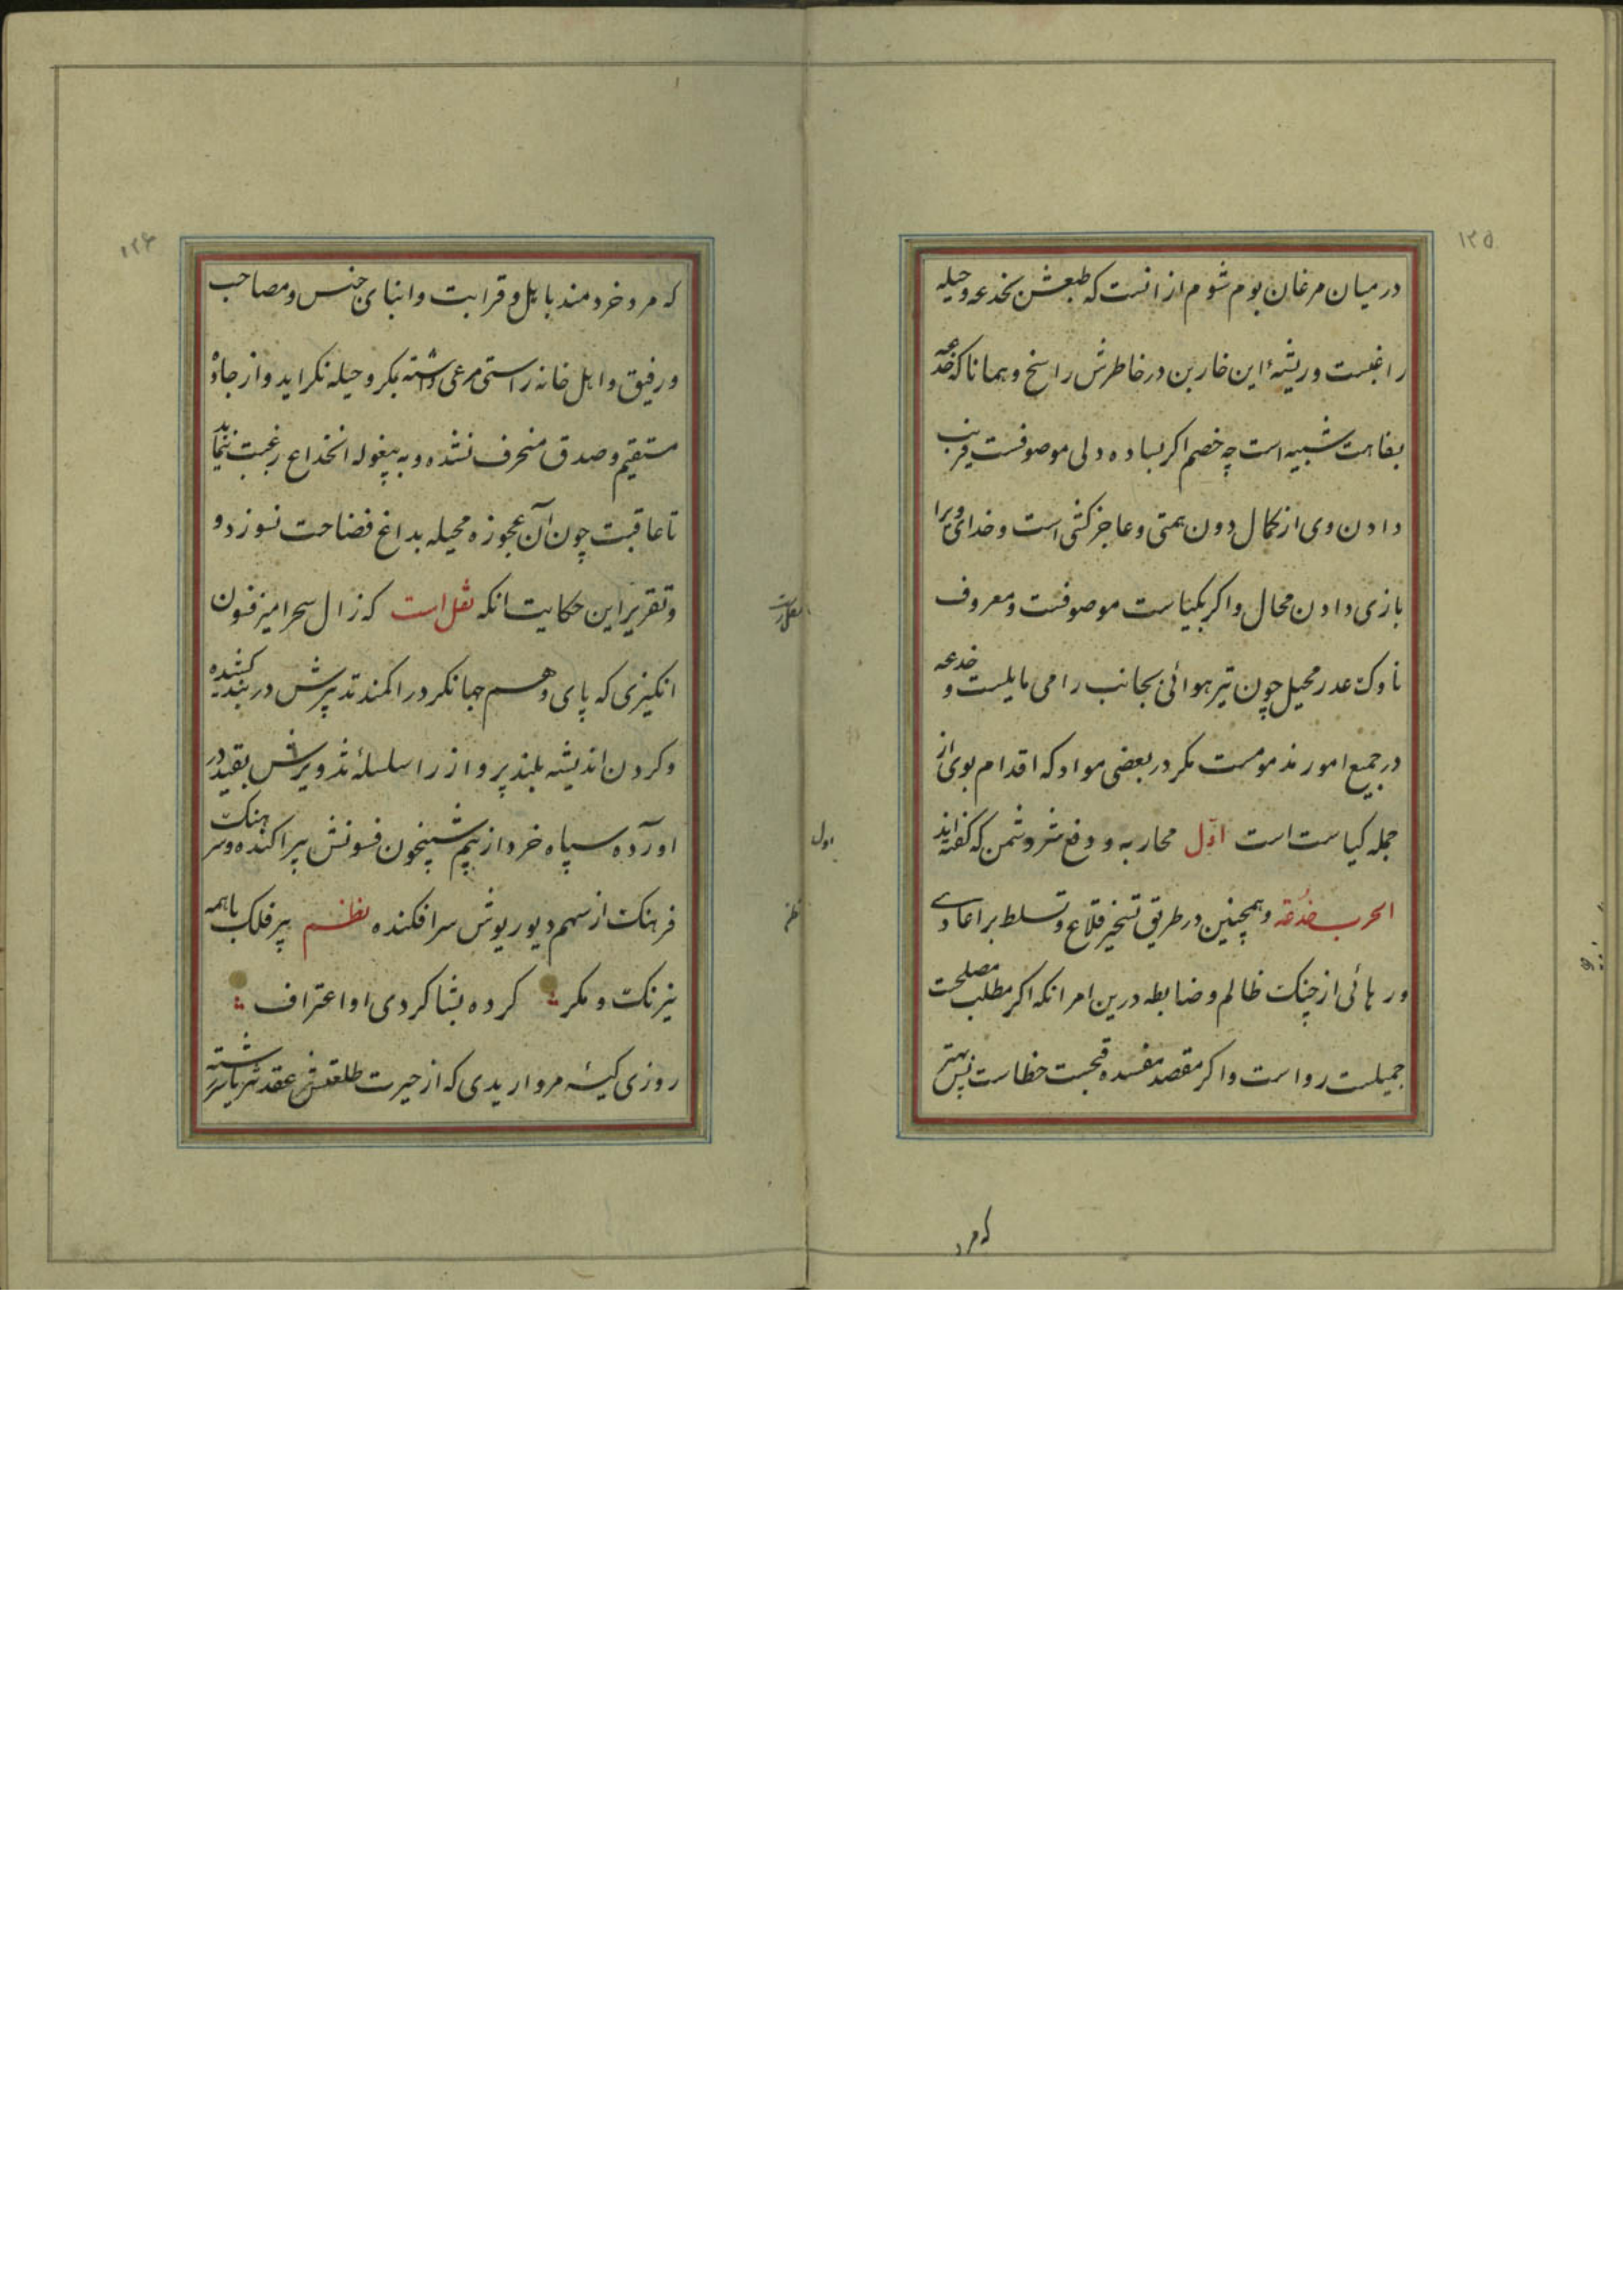 ۱۲۵
در میان مرغان بوم شوم از انست که طبعش بخدعه و حیله
راغبست و ریشهٔ این خاربن در خاطرش راسخ و همانا که خدعه
بفاهت شبیه است چه خصم اکر بساده دلی موصوفست فریب
دادن وی از کمال دون همتی و عاجز کشی است و خدای ویرا
بازی دادن محال و اکر بکیاست موصوفست و معروف
ناوک غدر محیل چون تیر هوائی بجانب رامی مایلست و خدعه
در جمیع امور مذمومست مکر در بعضی مواد که اقدام بوی از
جمله کیاست است اول محاربه و دفع شر دشمن که کفته‌اند
الحرب خدعة و همچنین در طریق تسخیر قلاع و تسلط بر اعادی
و رهائی از چنک ظالم و ضابطه درین امر انکه اکر مطلب مصلحت
جمیلست رواست و اکر مقصد مفسده قبحست خطاست پس بهتر
که مرد
۱۲۶
که مرد خردمند با اهل و قرابت و ابنای جنس و مصاحب
و رفیق و اهل خانه راستی مرعی داشته بمکر و حیله نکراید و از جادهٔ
مستقیم و صدق منحرف نشده و به پیغوله انخداع رغبت ننماید
تا عاقبت چون آن عجوزه محیله بداغ فضاحت نسوزد و
و تقریر این حکایت انکه نقل است که زال سحرامیز فنون
انکیزی که پای وهم جهانکرد را کمند تدبیرش در بند کشیده
و کردن اندیشه بلند پرواز را سلسلهٔ تزویرش بقید در
اورده سپاه خرد از بیم شبیخون فسونش پراکنده و سرهنک
فرهنک از سهم دیو ریوش سرافکنده نظم پیر فلک با همه
نیرنک و مکر کرده بشاکردی او اعتراف
روزی کیسه مرواریدی که از حیرت طلعتش عقد ثریا سررشته
نقل است
اول
نظم